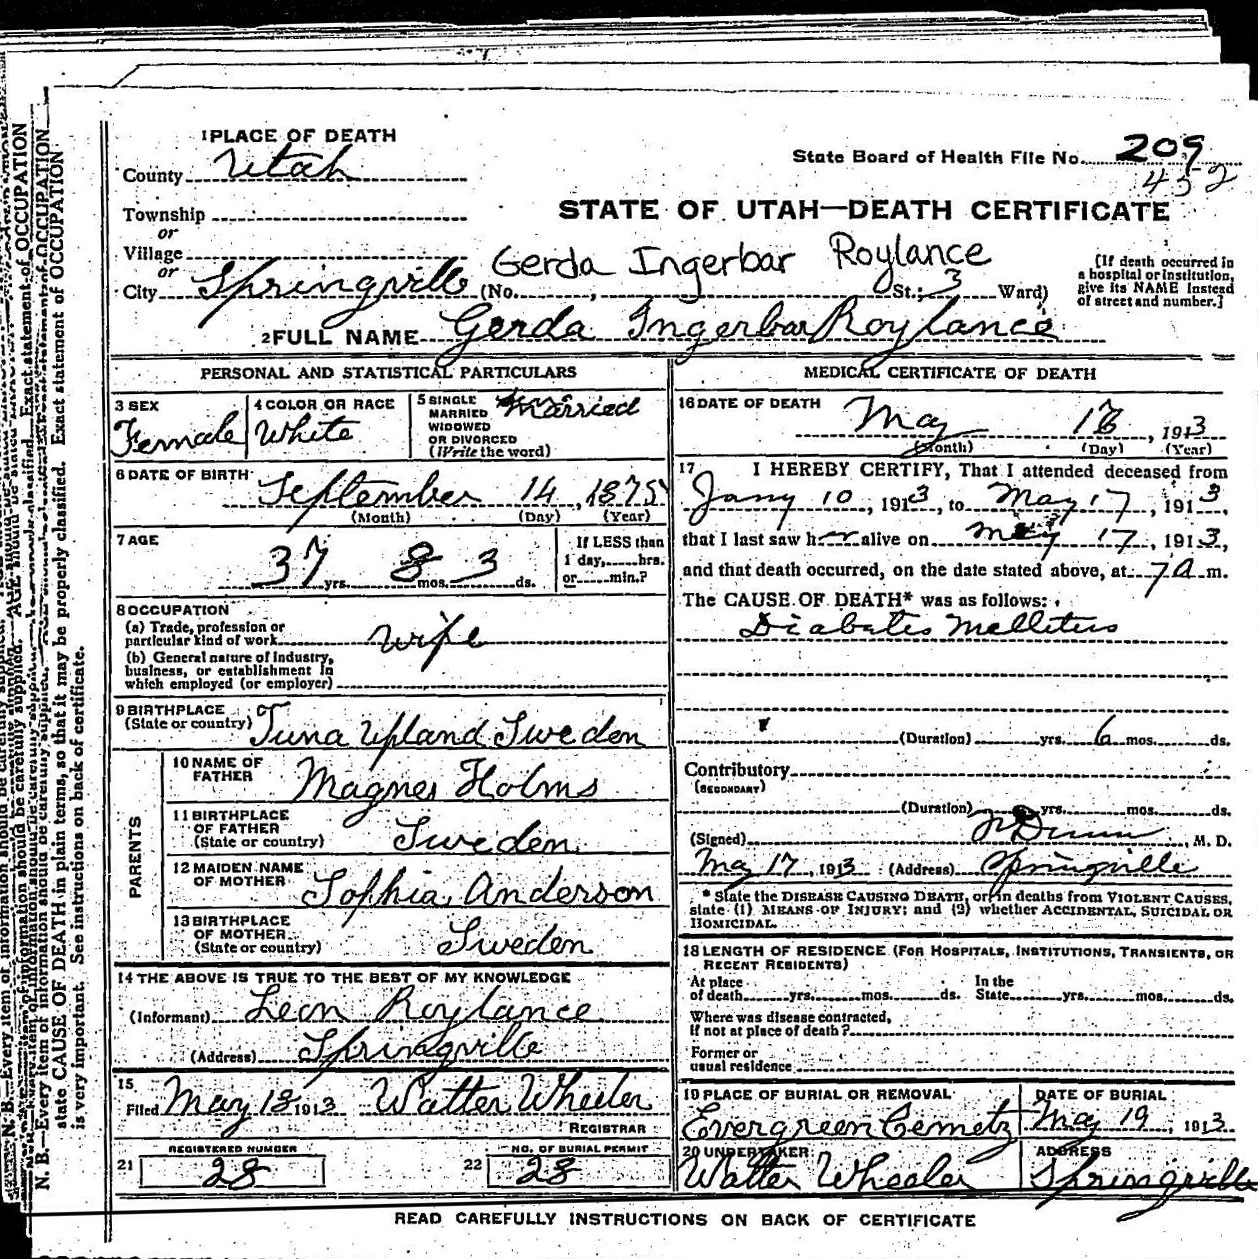 1 PLACE OF DEATH
County Utah
State Board of Health File No. 209
452
Township
or
STATE OF UTAH—DEATH CERTIFICATE
Village
or
Gerda Ingerbar Roylance
City Springville (No. , St.; 3 Ward)
(If death occurred in
a hospital or institution,
give its NAME instead
of street and number.]
2 FULL NAME Gerda Ingerbar Roylance
PERSONAL AND STATISTICAL PARTICULARS
3 SEX
Female
4 COLOR OR RACE
White
5 SINGLE
MARRIED
WIDOWED
OR DIVORCED
(Write the word)
Married
6 DATE OF BIRTH
September 14, 1875
(Month) (Day) (Year)
7 AGE
37 yrs. 8 mos. 3 ds.
If LESS than
1 day, hrs.
or min.?
8 OCCUPATION
(a) Trade, profession or
particular kind of work wife
(b) General nature of industry,
business, or establishment in
which employed (or employer)
9 BIRTHPLACE
(State or country) Tuna Upland Sweden
PARENTS
10 NAME OF
FATHER Magnes Holms
11 BIRTHPLACE
OF FATHER
(State or country) Sweden
12 MAIDEN NAME
OF MOTHER Sophia Anderson
13 BIRTHPLACE
OF MOTHER
(State or country) Sweden
14 THE ABOVE IS TRUE TO THE BEST OF MY KNOWLEDGE
(Informant) Leon Roylance
(Address) Springville
15
Filed May 18 1913 Walter Wheeler
REGISTRAR
21 REGISTERED NUMBER
28
22 NO. OF BURIAL PERMIT
28
MEDICAL CERTIFICATE OF DEATH
16 DATE OF DEATH
May , 1913
(Month) (Day) (Year)
17 I HEREBY CERTIFY, That I attended deceased from
Jany 10, 1913, to May 17, 1913,
that I last saw h er alive on May 17, 1913,
and that death occurred, on the date stated above, at 7 a m.
The CAUSE OF DEATH* was as follows:
Diabates Mellitus
(Duration) yrs. 6 mos. ds.
Contributory
(SECONDARY)
(Duration) yrs. mos. ds.
(Signed) Dunn, M. D.
May 17, 1913 (Address) Springville
* State the DISEASE CAUSING DEATH, or in deaths from VIOLENT CAUSES,
state (1) MEANS OF INJURY; and (2) whether ACCIDENTAL, SUICIDAL OR
HOMICIDAL.
18 LENGTH OF RESIDENCE (FOR HOSPITALS, INSTITUTIONS, TRANSIENTS, OR
RECENT RESIDENTS)
At place
of death yrs. mos. ds.
In the
State yrs. mos. ds.
Where was disease contracted,
if not at place of death?
Former or
usual residence
19 PLACE OF BURIAL OR REMOVAL
Evergreen Cemetz
DATE OF BURIAL
May 19, 1913
20 UNDERTAKER
Walter Wheeler
ADDRESS
Springville
READ CAREFULLY INSTRUCTIONS ON BACK OF CERTIFICATE
N. B.—Every item of information should be carefully supplied. AGE should be
state CAUSE OF DEATH in plain terms, so that it may be properly classified. Exact statement of OCCUPATION
is very important. See instructions on back of certificate.